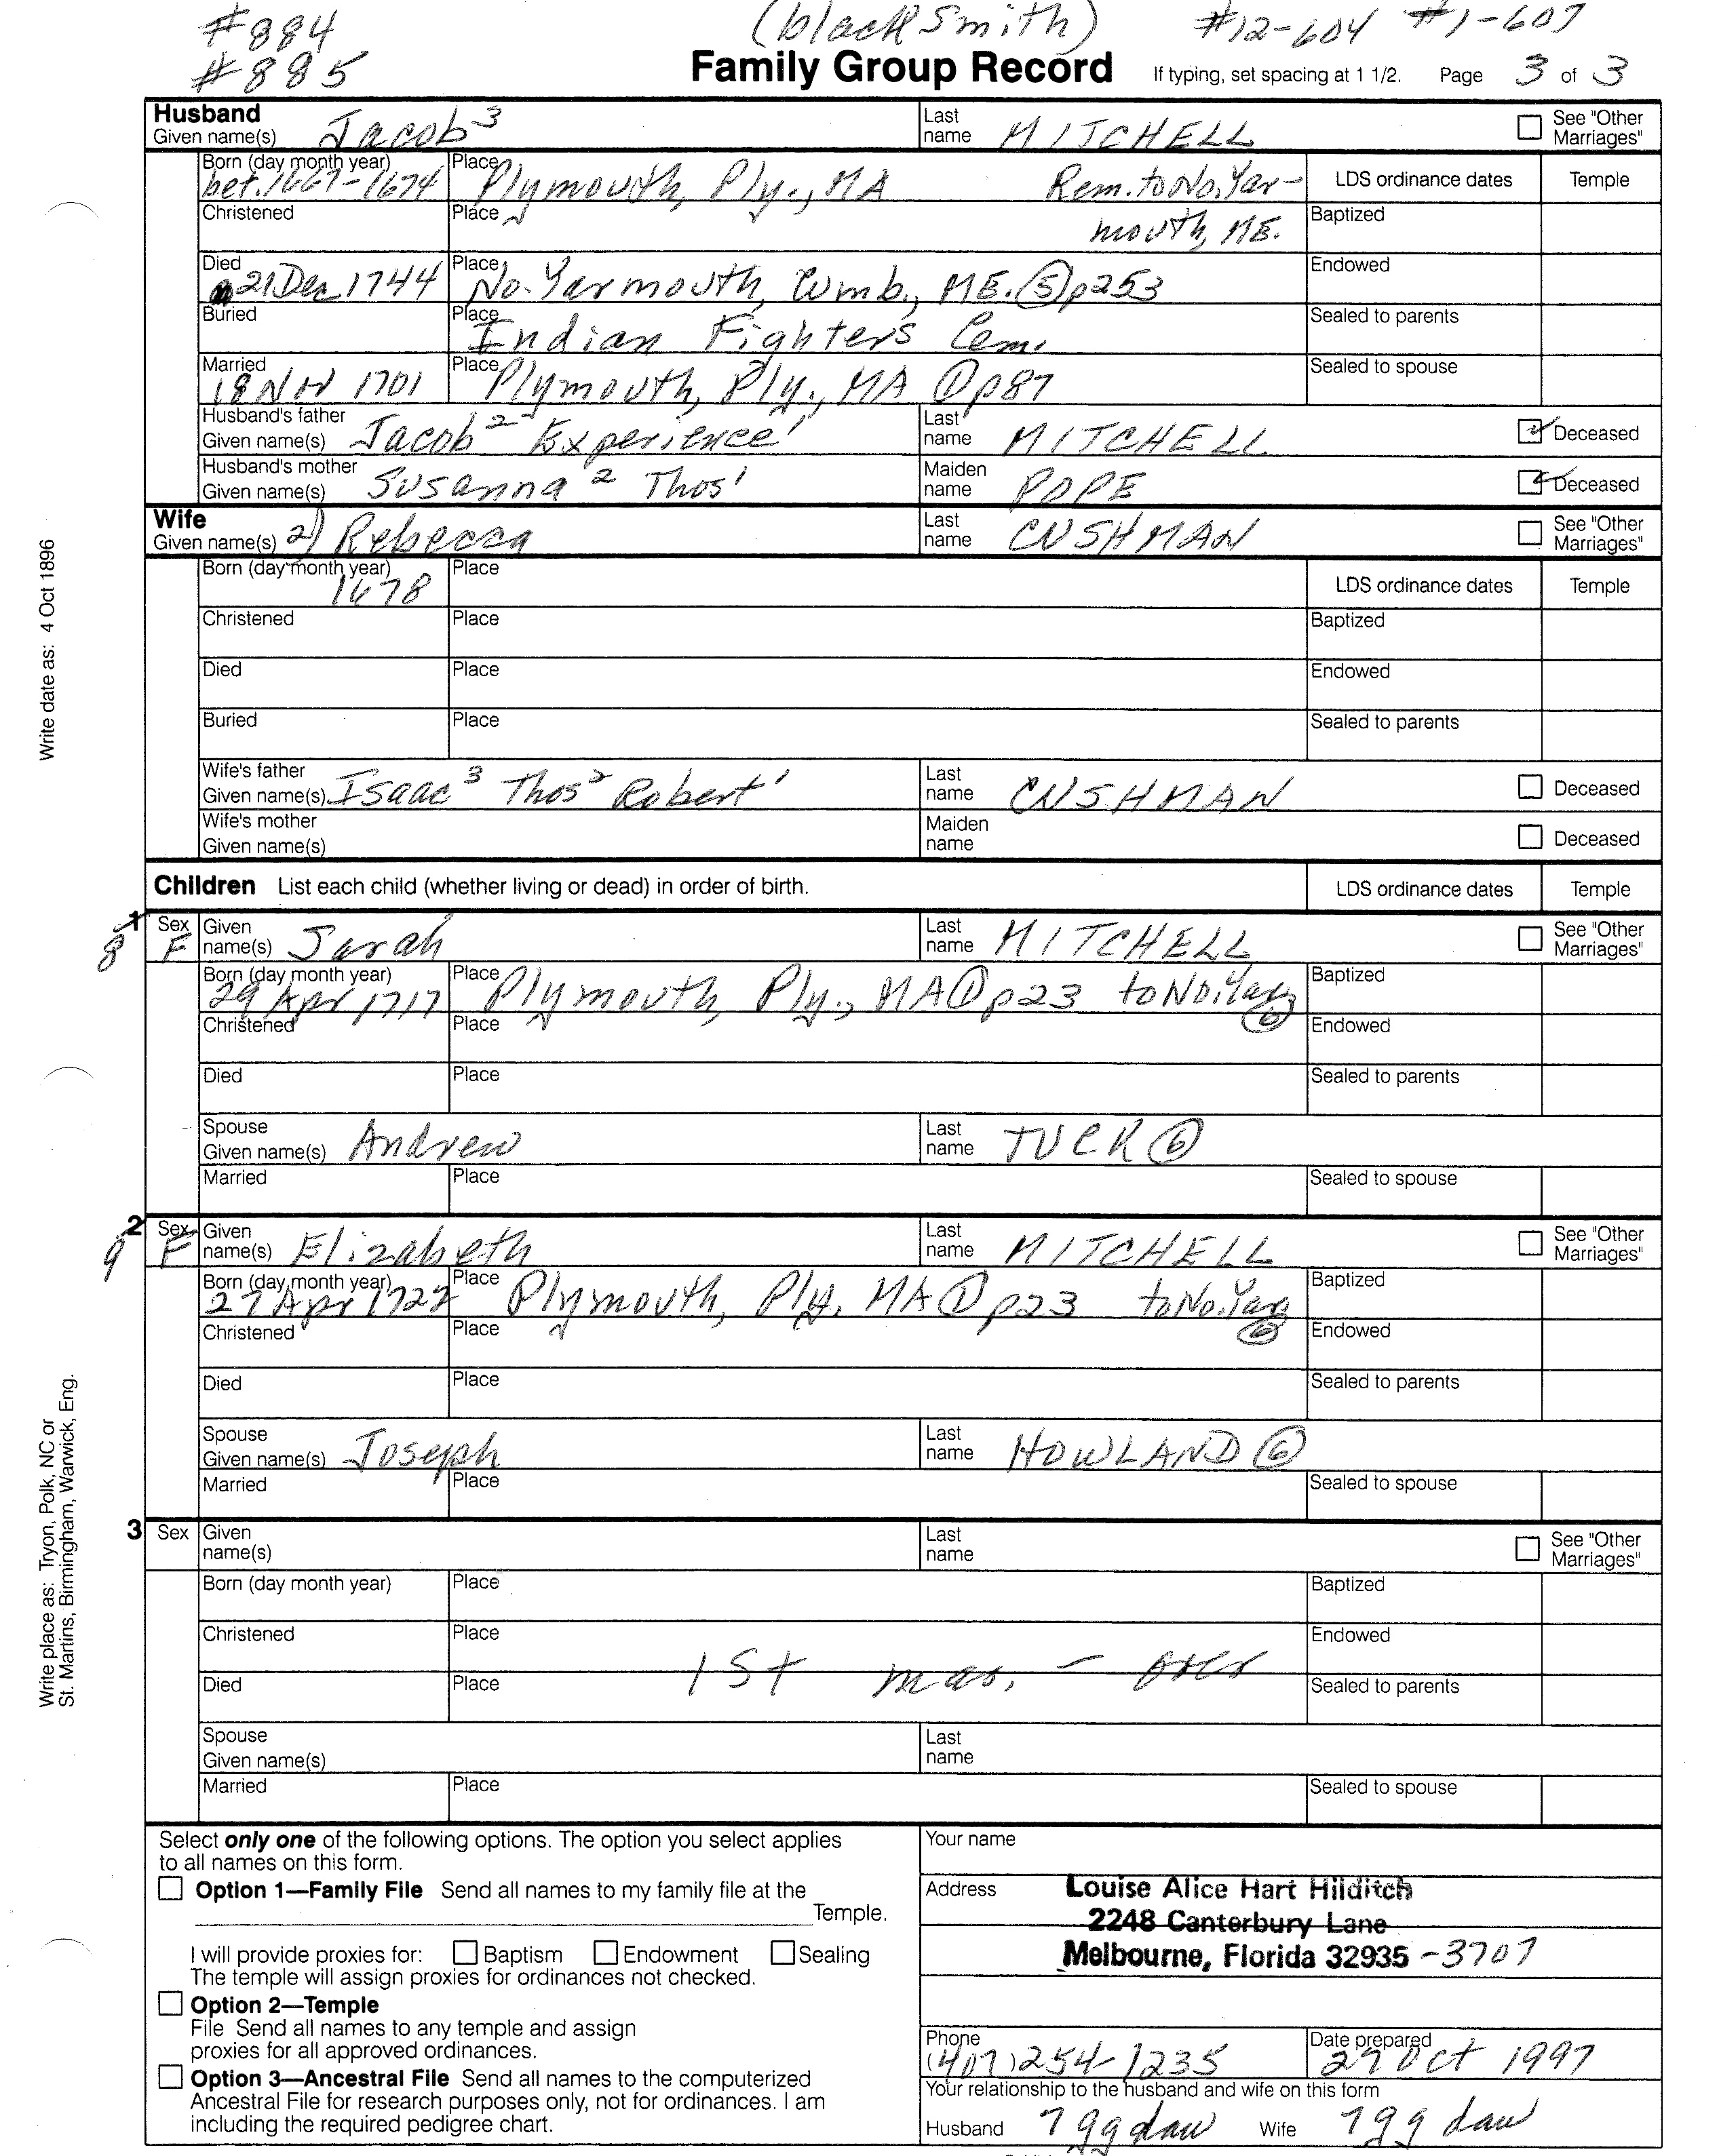 #884 (blacksmith) #12-604 #1-607
#885 Family Group Record If typing, set spacing at 1 1/2. Page 3 of 3
Husband
Given name(s) Jacob³ Last name MITCHELL See "Other Marriages"
Born (day month year) bet. 1667-1674 Place Plymouth, Ply., MA Rem. to No. Yar- LDS ordinance dates Temple
Christened Place mouth, ME. Baptized
Died 21 Dec 1744 Place No. Yarmouth, Cumb., ME. ⑤ p253 Endowed
Buried Place Indian Fighters Cem. Sealed to parents
Married 18 Nov 1701 Place Plymouth, Ply., MA ① p87 Sealed to spouse
Husband's father Given name(s) Jacob² Experience¹ Last name MITCHELL Deceased
Husband's mother Given name(s) Susanna² Thos¹ Maiden name POPE Deceased
Wife
Given name(s) 2) Rebecca Last name CUSHMAN See "Other Marriages"
Born (day month year) 1678 Place LDS ordinance dates Temple
Christened Place Baptized
Died Place Endowed
Buried Place Sealed to parents
Wife's father Given name(s) Isaac³ Thos² Robert¹ Last name CUSHMAN Deceased
Wife's mother Given name(s) Maiden name Deceased
Children List each child (whether living or dead) in order of birth. LDS ordinance dates Temple
1 8 Sex F Given name(s) Sarah Last name MITCHELL See "Other Marriages"
Born (day month year) 29 Apr 1717 Place Plymouth, Ply., MA ① p23 to No. Yar. ⑥ Baptized
Christened Place Endowed
Died Place Sealed to parents
Spouse Given name(s) Andrew Last name TUCK ⑥
Married Place Sealed to spouse
2 9 Sex F Given name(s) Elizabeth Last name MITCHELL See "Other Marriages"
Born (day month year) 27 Apr 1722 Place Plymouth, Ply. MA ① p23 to No. Yar. ⑥ Baptized
Christened Place Endowed
Died Place Sealed to parents
Spouse Given name(s) Joseph Last name HOWLAND ⑥
Married Place Sealed to spouse
3 Sex Given name(s) Last name See "Other Marriages"
Born (day month year) Place Baptized
Christened Place Endowed
Died Place 1st mar. - over Sealed to parents
Spouse Given name(s) Last name
Married Place Sealed to spouse
Select only one of the following options. The option you select applies
to all names on this form.
Option 1—Family File Send all names to my family file at the
Temple.
I will provide proxies for: Baptism Endowment Sealing
The temple will assign proxies for ordinances not checked.
Option 2—Temple
File Send all names to any temple and assign
proxies for all approved ordinances.
Option 3—Ancestral File Send all names to the computerized
Ancestral File for research purposes only, not for ordinances. I am
including the required pedigree chart.
Your name
Address Louise Alice Hart Hilditch
2248 Canterbury Lane
Melbourne, Florida 32935-3707
Phone (407) 254-1235 Date prepared 29 Oct 1997
Your relationship to the husband and wife on this form
Husband 7 gg dau Wife 7 gg dau
Write date as: 4 Oct 1896
Write place as: Tryon, Polk, NC or
St. Martins, Birmingham, Warwick, Eng.